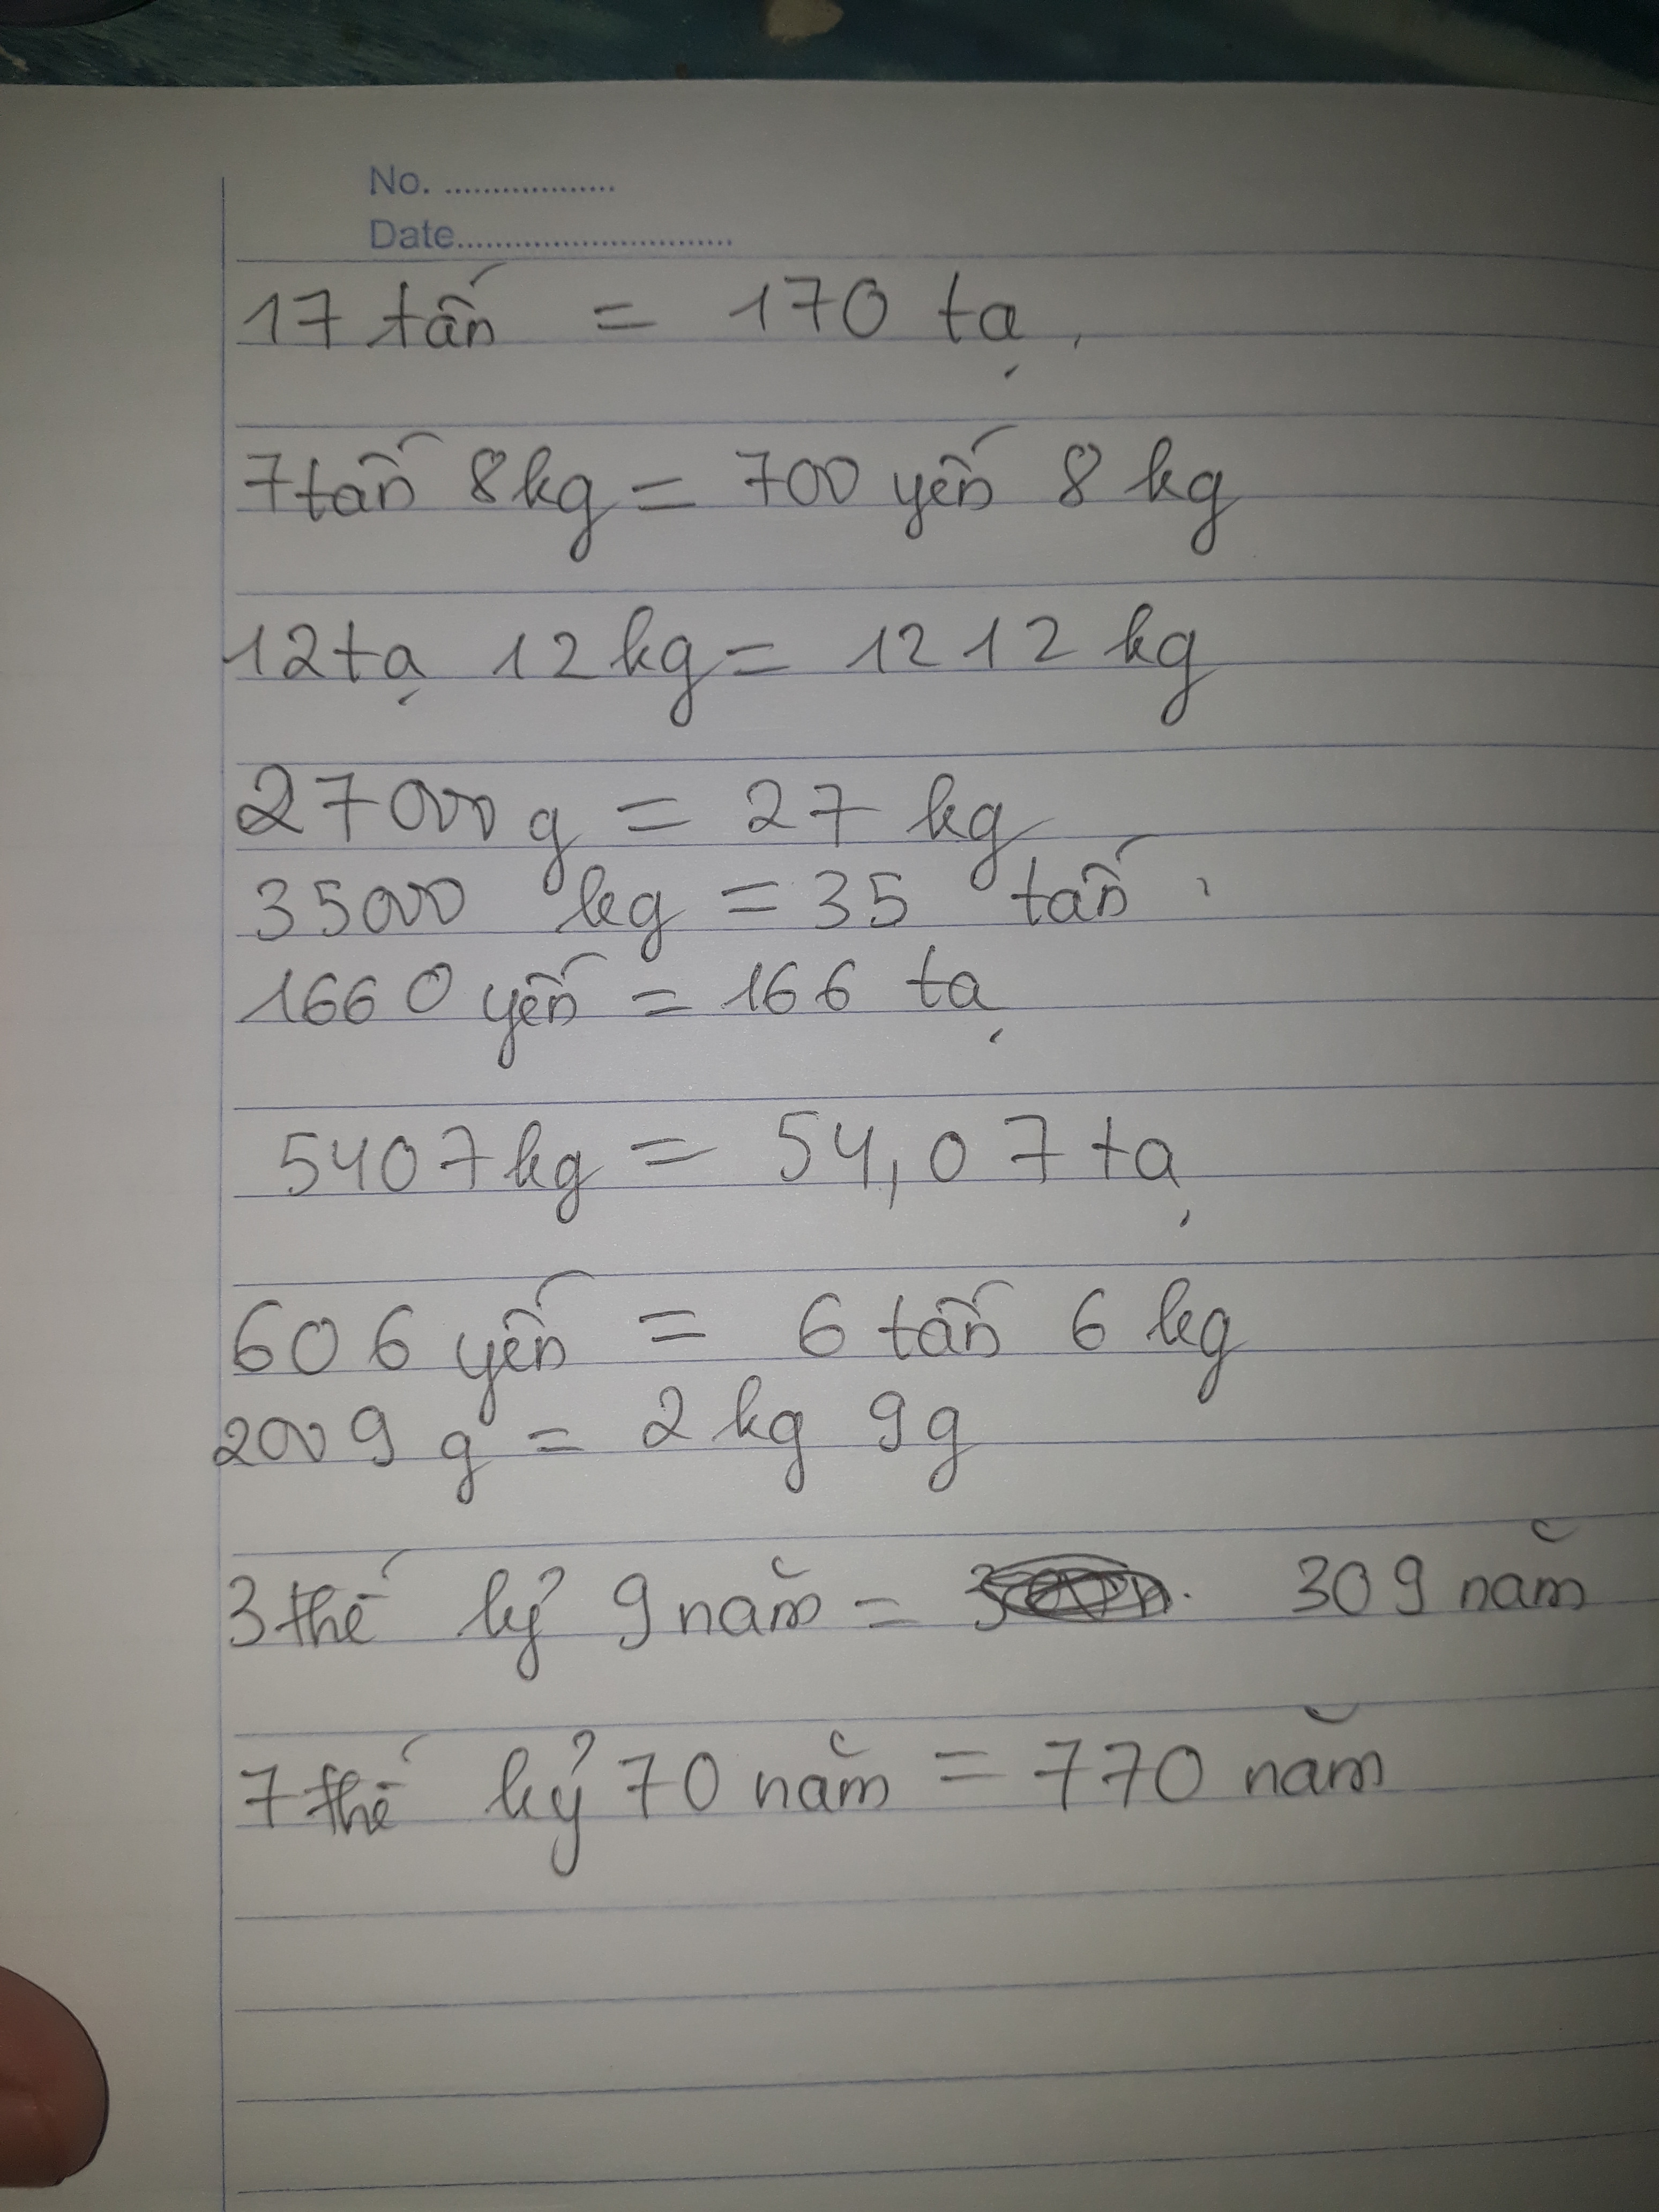 No. ...................
Date..............................
17 tấn = 170 tạ,
7 tấn 8 kg = 700 yến 8 kg
12 tạ 12 kg = 1212 kg
27000 g = 27 kg
35000 kg = 35 tấn.
1660 yến = 166 tạ
5407 kg = 54,07 tạ
606 yến = 6 tấn 6 kg
2009 g = 2 kg 9g
3 thế kỷ 9 năm = 309 năm
7 thế kỷ 70 năm = 770 năm